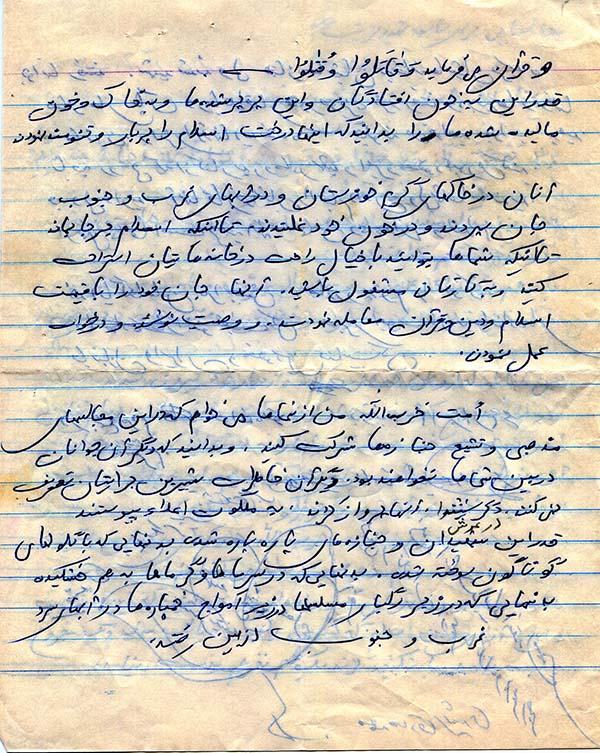 قرآن می فرماید وَقاتَلُوا وُقُتِلُوا
قدر این به خون افتادگان و این پرپر شده ها و به خاک و خون
مالیده شده ها را بدانید که اینها درخت اسلام را پربار و تقویت نمودن
آنان در خاکهای گرم خوزستان و در کوههای غرب و جنوب
جان سپردند و در خون خود غلتیدند تا اینکه اسلام برجا بماند
تا اینکه شما ها بتوانید با خیال راحت در خانه هایتان استراحت
کنید و به کارتان مشغول باشید. آنها جان خود را با قیمت
اسلام و دین و قرآن معامله نمودند. و وصیت نوشتند و در خواب
عمل نمودن.
امت حزب الله من از شماها می خواهم که در این مجالسهای
مذهبی و تشییع جنازه ها شرکت کنید. و بدانید که دیگر آن جوانان
در بین شما ها نخواهند بود. و دیگر آن خاطرات شیرین را برایتان تعریف
نمی کنند. آنها پرواز کردند. به ملکوت اعلاء پیوستند
قدر این شهیدان و جنازه های پاره پاره شده، به تنهایی که با گلوله های
گوناگون سوخته شده. به تنهایی که در سرماها و گرماها به هم خشکیده
به تنهایی که در زیر رگبار مسلسلها در زیر امواج خمپاره ها در آبهای سرد
غرب و جنوب از بین رفتند.